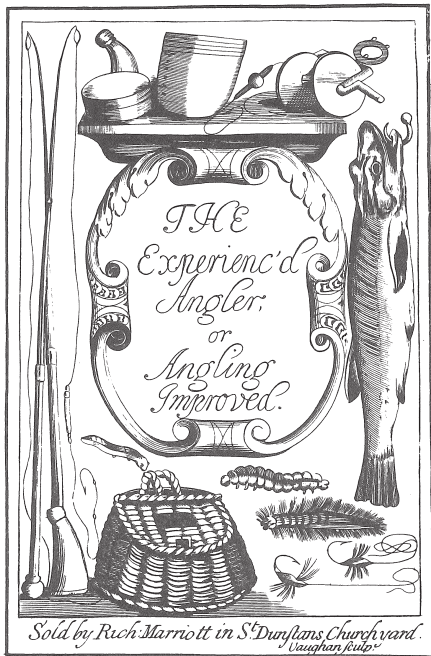 THE
Experienc'd
Angler;
or
Angling
Improved.
Sold by Rich: Marriott in St. Dunstans Churchyard.
Vaughan sculp.